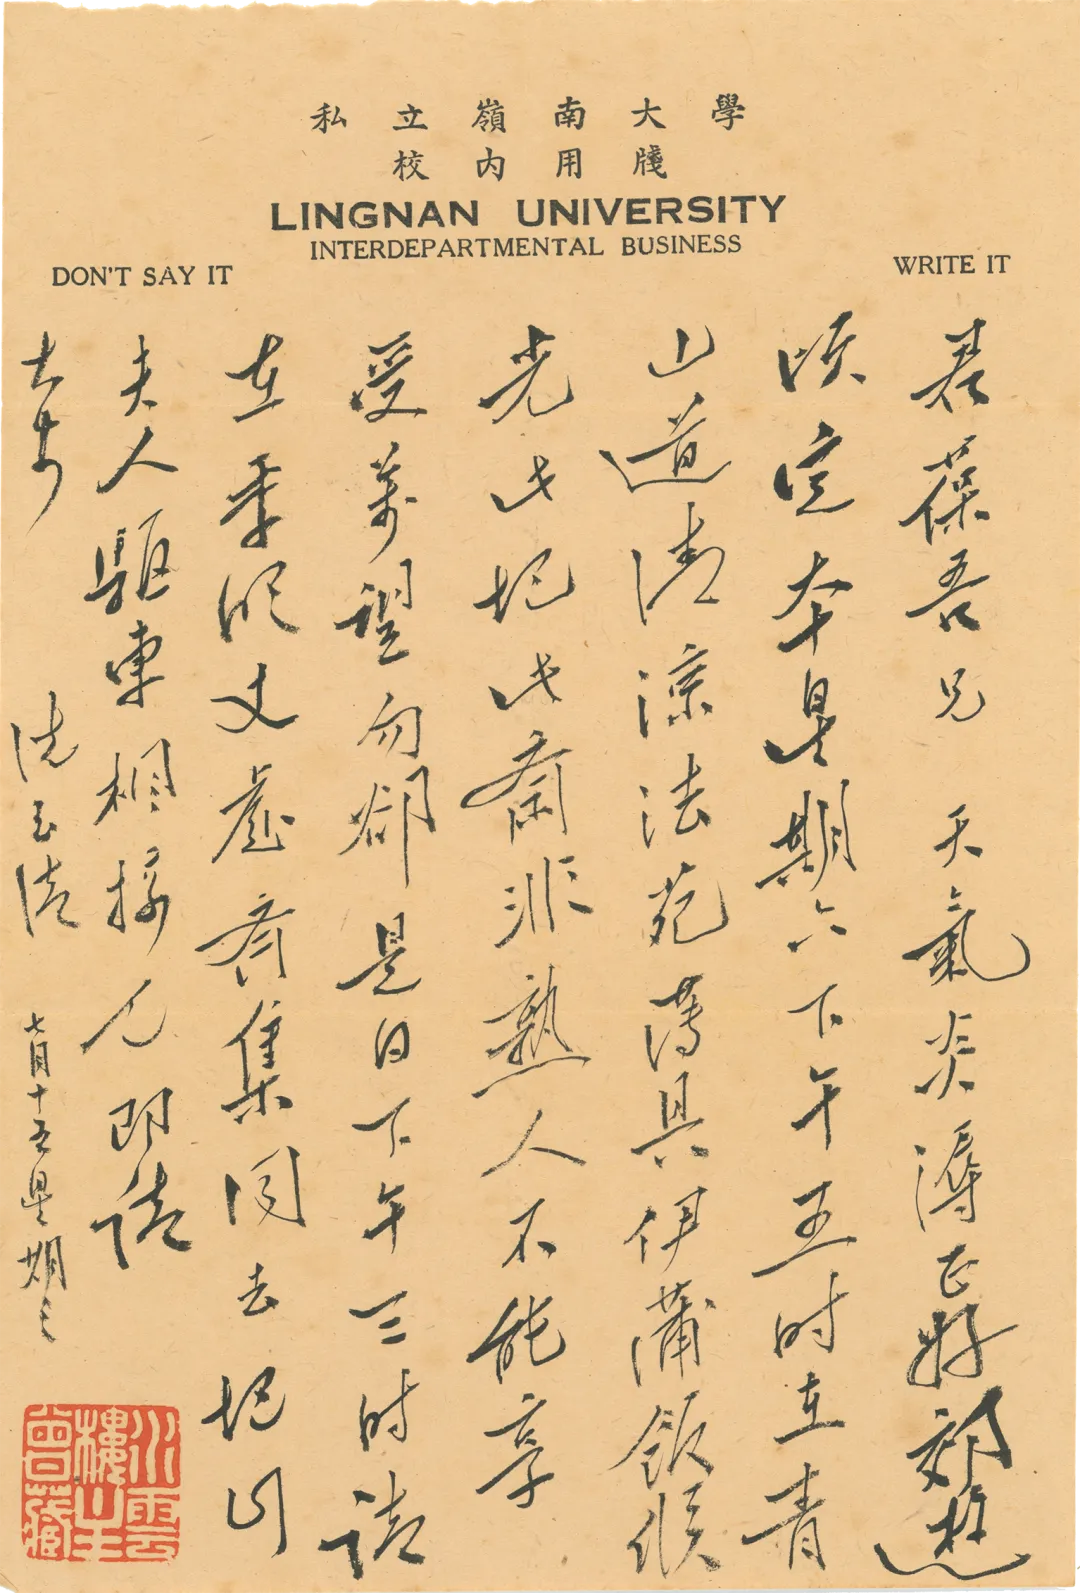 私立嶺南大學
校內用牋
LINGNAN UNIVERSITY
INTERDEPARTMENTAL BUSINESS
DON'T SAY IT
WRITE IT
君葆吾兄 天氣炎溽正好郊遊
頃定本星期六下午五时在青
山道清涼法苑薄具伊蒲飯候
光此地此齋非熟人不能享
受萬望勿卻是日下午三时請
在季明丈處齊集同去地山
夫人駈車相接也即請
大安
冼玉清
七月十五星期三
小雲樓山主曾藏